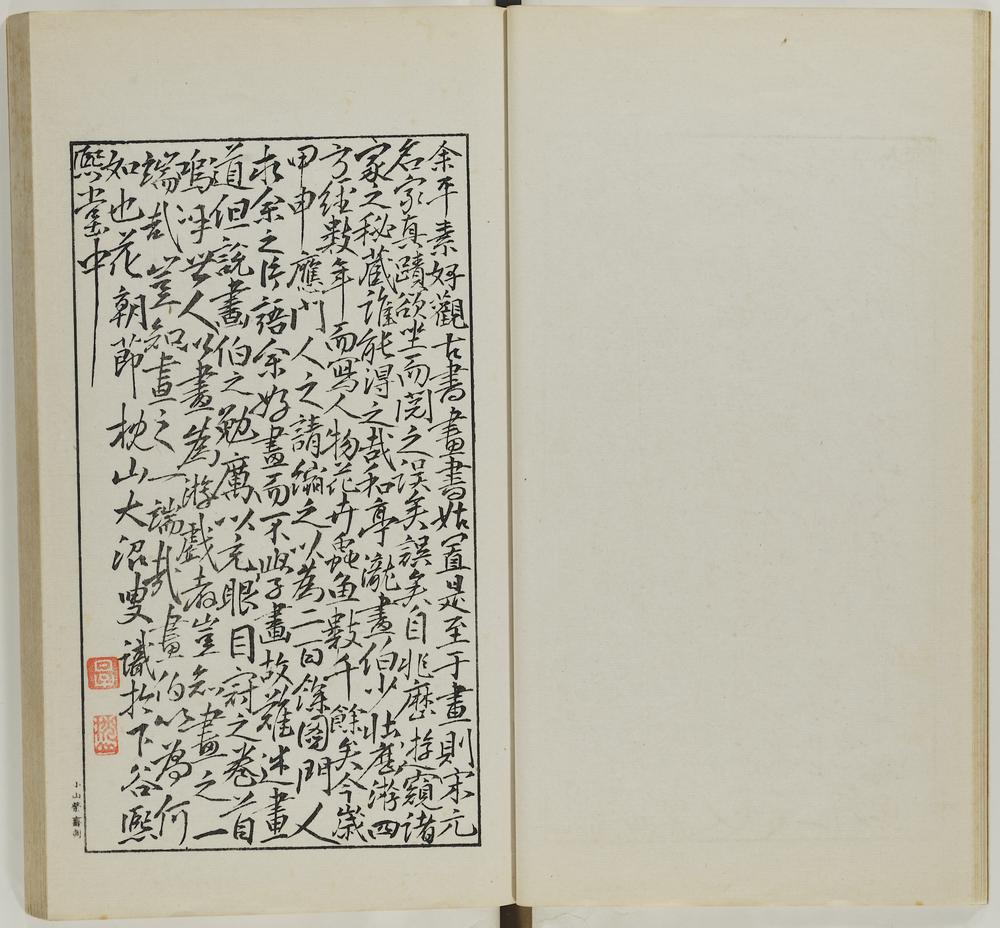 余平素好觀古書畫書姑置是至于畫則宋元
名家真蹟欲坐而閲之誤矣誤矣自非歷遊窺諸
家之秘藏誰能得之哉和亭瀧畫伯少壯歷游四
方經數年而寫人物花卉蟲魚數千餘矣今歲
甲申應門人之請縮之以為二百餘圖門人
求余之片語余好畫而不學畫故難述畫
道但說畫伯之勉厲以充眼目冠之卷首
嗚呼世人以畫為游戲者豈知畫之一
端哉豈知畫之一端哉畫伯以為何
如也花朝節枕山大沼叟識於下谷熙
熙堂中
小山榮齋刻